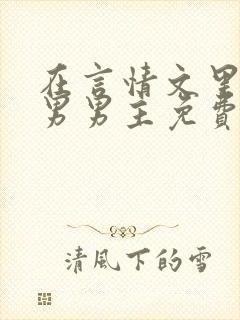 在言情文里
男男主免費
清風下的雪